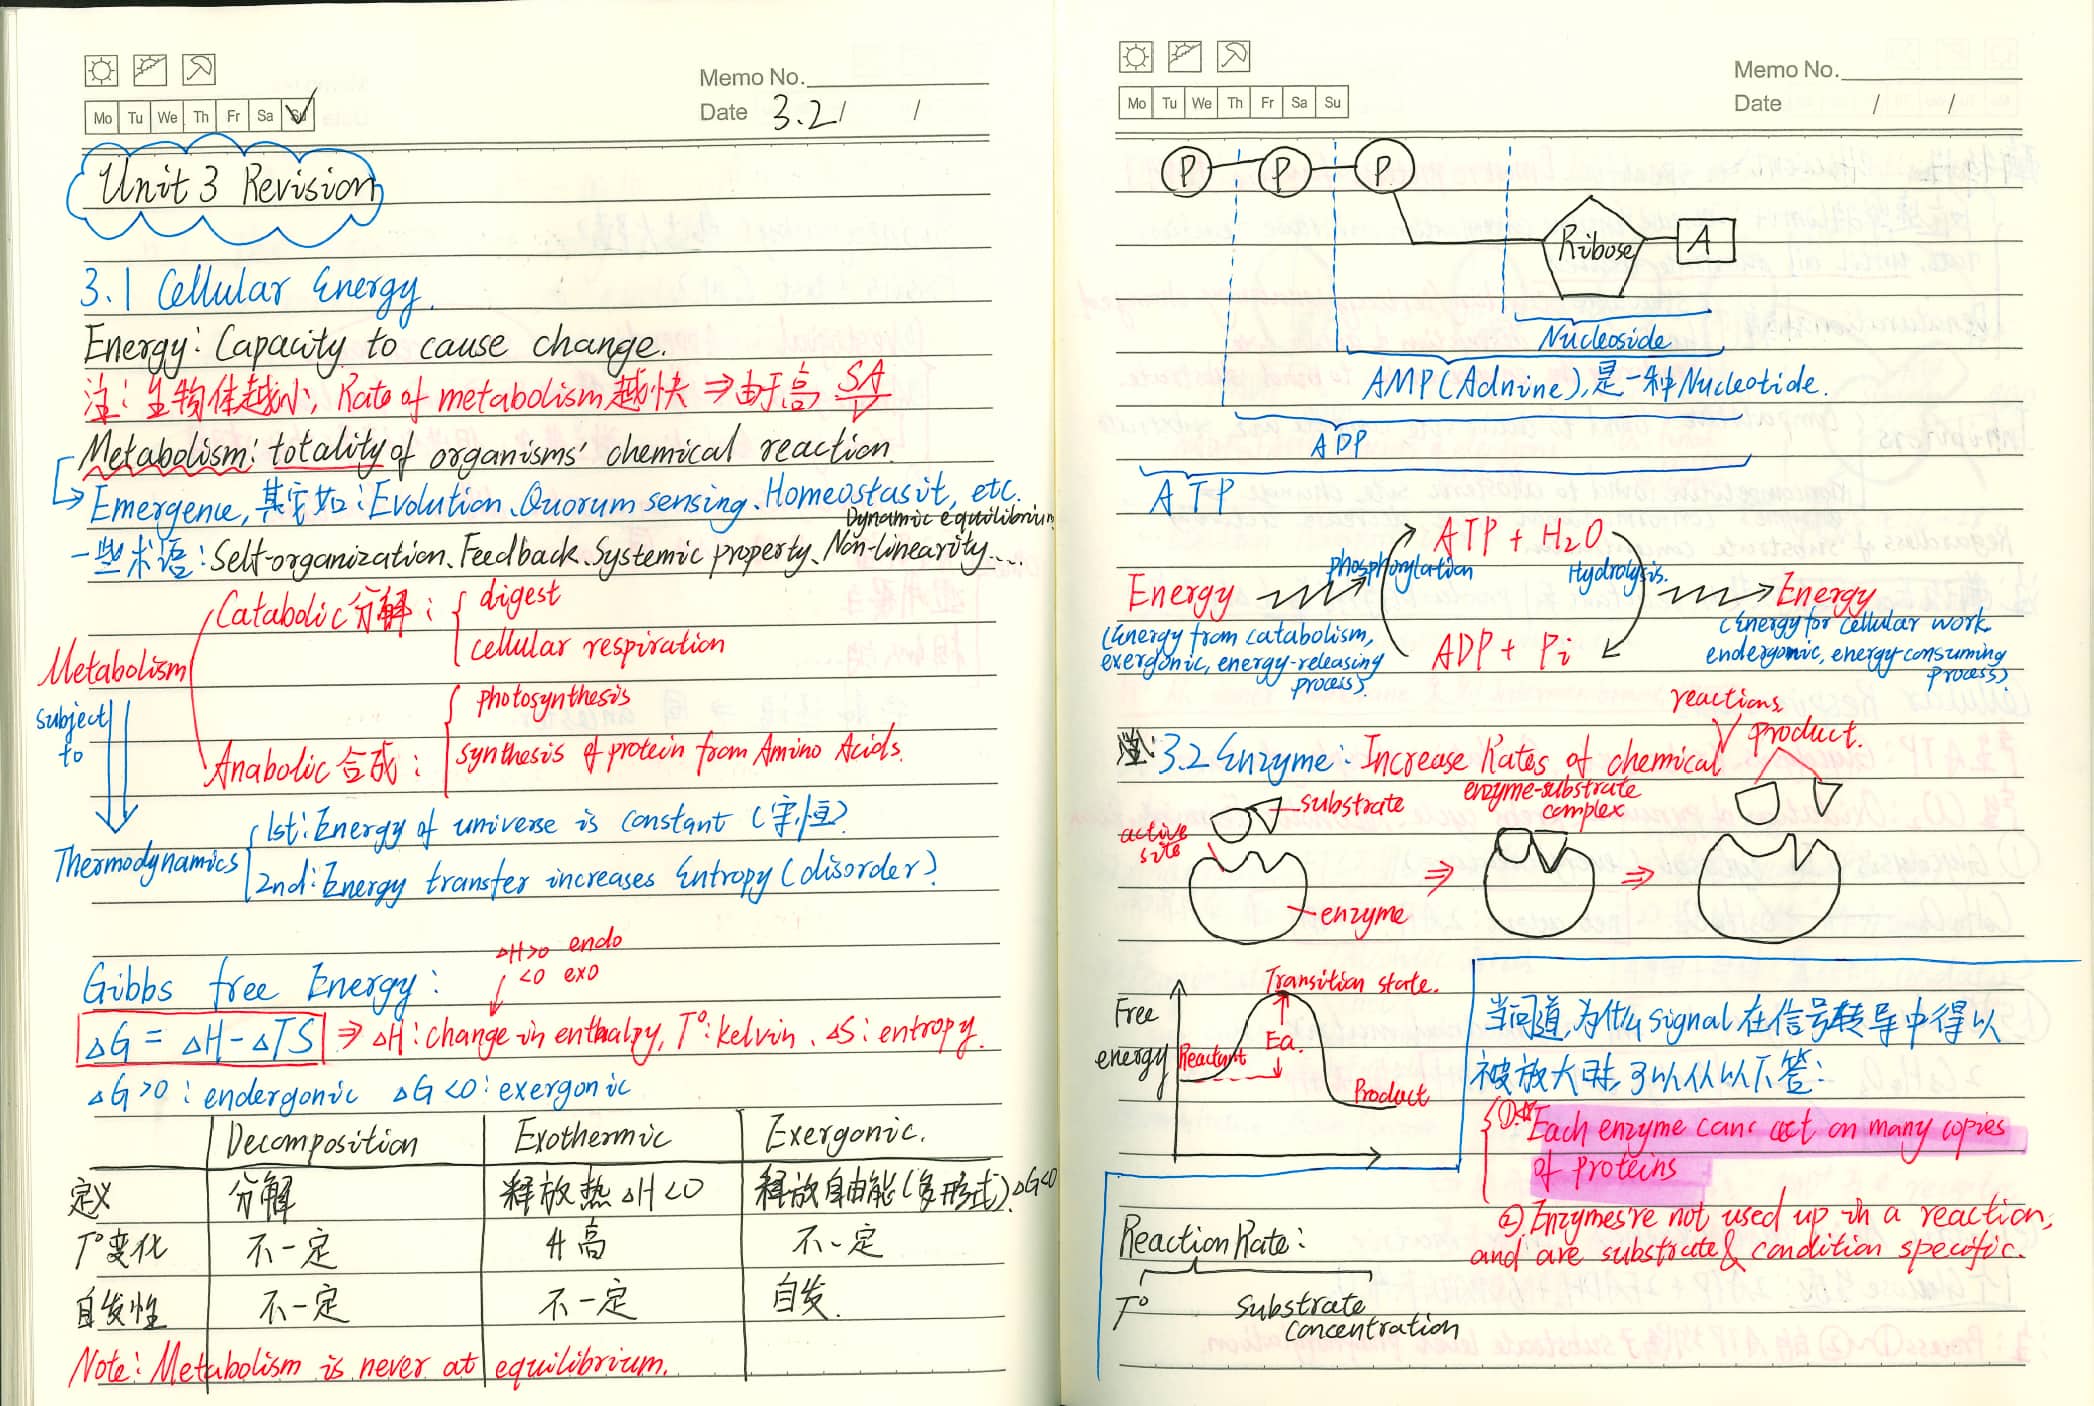 Memo No.
Mo Tu We Th Fr Sa Su
Date 3.2 / /
Unit 3 Revision
3.1 Cellular Energy.
Energy: Capacity to cause change.
注: 生物体越小, Rate of metabolism 越快 ⇒ 由于高 SA/V
Metabolism: totality of organisms' chemical reaction.
Emergence, 其它如: Evolution、Quorum sensing、Homeostasit, etc.
Dynamic equilibrium
一些术语: Self-organization、Feedback、Systemic property、Non-linearity...
Catabolic 分解: digest
cellular respiration
Metabolism
photosynthesis
Anabolic 合成: synthesis of protein from Amino Acids.
subject to
Thermodynamics
1st: Energy of universe is constant (守恒)
2nd: Energy transfer increases Entropy (disorder).
△H>0 endo
<0 exo
Gibbs free Energy:
△G = △H-△TS ⇒ △H: change in enthalpy, T°: kelvin、△S: entropy.
△G>0: endergonic △G<0: exergonic
Decomposition Exothermic Exergonic.
定义 分解 释放热 △H<0 释放自由能(多形式) △G<0.
T°变化 不一定 升高 不一定
自发性 不一定 不一定 自发.
Note: Metabolism is never at equilibrium.
Memo No.
Mo Tu We Th Fr Sa Su
Date / /
P P P
Ribose A
Nucleoside
AMP (Adnine), 是一种 Nucleotide.
ADP
ATP
ATP + H₂O
phosphorylation Hydrolysis.
Energy Energy
(Energy from catabolism,
exergonic, energy-releasing
process).
ADP + Pi
(Energy for cellular work,
endergonic, energy-consuming
process).
注: 3.2 Enzyme: Increase Rates of chemical reactions.
product.
substrate
active site
enzyme
enzyme-substrate
complex
⇒ ⇒
Free energy
Transition state.
Ea.
Reactant
Product
当问道,为什么 signal 在信号转导中得以
被放大时,可以从以下答:
①☆ Each enzyme canc act on many copies
of proteins
② Enzymes're not used up in a reaction,
and are substrate & condition specific.
Reaction Rate:
T° Substrate
Concentration